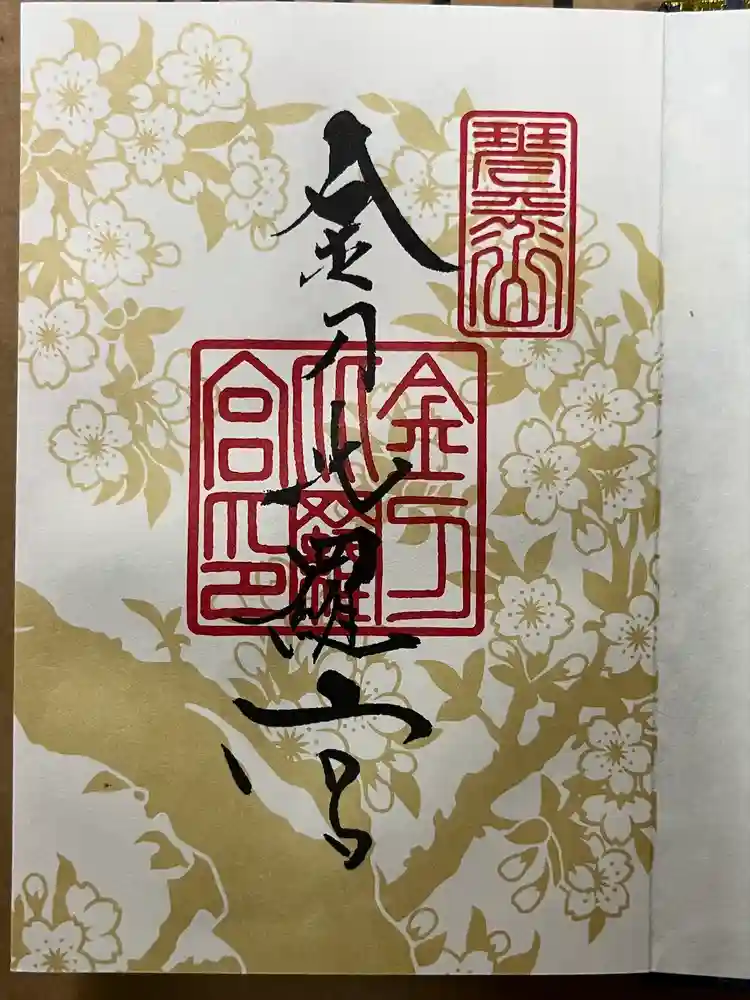 琴平山
金刀比羅宮
金刀
比羅
宮印